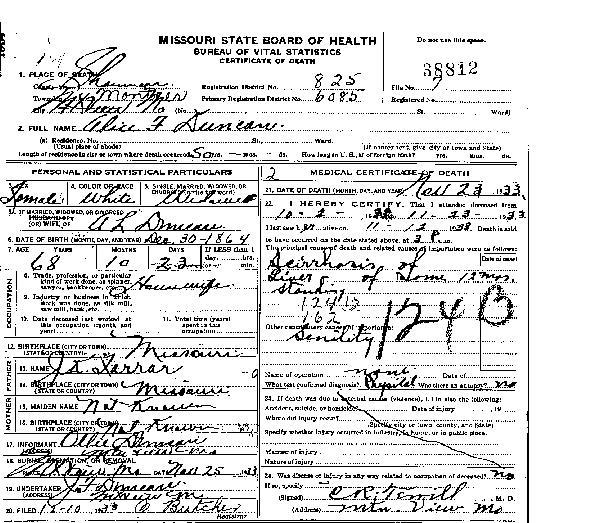 MISSOURI STATE BOARD OF HEALTH
BUREAU OF VITAL STATISTICS
CERTIFICATE OF DEATH
Do not use this space.
38812
1. PLACE OF DEATH
County Shannon
Registration District No. 825
File No.
Township Montier
Primary Registration District No. 6085
Registered No.
City (No. St. Ward)
2. FULL NAME Alice F Duncan
(a) Residence. No. St. Ward.
(Usual place of abode) (If nonresident give city or town and State)
Length of residence in city or town where death occurred 50 yrs. mos. ds. How long in U. S., if of foreign birth? yrs. mos. ds.
PERSONAL AND STATISTICAL PARTICULARS
3. SEX Female
4. COLOR OR RACE White
5. SINGLE, MARRIED, WIDOWED, OR DIVORCED Widowed
5a. IF MARRIED, WIDOWED, OR DIVORCED
HUSBAND OF (OR) WIFE OF A L Duncan
6. DATE OF BIRTH (MONTH, DAY, AND YEAR) Dec 30-1864
7. AGE YEARS 68 MONTHS 10 DAYS 23 If LESS than 1 day, hrs. or min.
OCCUPATION
8. Trade, profession, or particular kind of work done, as spinner, sawyer, bookkeeper, etc. Housewife
9. Industry or business in which work was done, as silk mill, saw mill, bank, etc.
10. Date deceased last worked at this occupation (month and year)
11. Total time (years) spent in this occupation
12. BIRTHPLACE (CITY OR TOWN) (STATE OR COUNTRY) Missouri
FATHER
13. NAME Farrar
14. BIRTHPLACE (CITY OR TOWN) (STATE OR COUNTRY) Missouri
MOTHER
15. MAIDEN NAME Not Known
16. BIRTHPLACE (CITY OR TOWN) (STATE OR COUNTRY) Not Known
17. INFORMANT (ADDRESS) Duncan
18. BURIAL, CREMATION, OR REMOVAL
Mo DATE Nov 25 1933
19. UNDERTAKER Duncan
(ADDRESS)
20. FILED 12-10 1933
Registrar
2 MEDICAL CERTIFICATE OF DEATH
21. DATE OF DEATH (MONTH, DAY, AND YEAR) Nov 23 1933
22. I HEREBY CERTIFY, That I attended deceased from
10-2- 1933, to 11-23- 1933
I last saw h alive on 11-12 1933 Death is said
to have occurred on the date stated above, at 3 P m.
The principal cause of death and related causes of importance were as follows:
Date of onset
Scirrhosis of
Liver of Some 12 mos.
standing
124B
162
124B
Other contributory causes of importance:
Senility
Name of operation none Date of
What test confirmed diagnosis? Physical Was there an autopsy? no
23. If death was due to external causes (violence), fill in also the following:
Accident, suicide, or homicide? Date of injury 19
Where did injury occur?
(Specify city or town, county, and State)
Specify whether injury occurred in industry, in home, or in public place.
Manner of injury
Nature of injury
24. Was disease or injury in any way related to occupation of deceased? no
If so, specify
(Signed) M. D.
(Address) Mtn View Mo